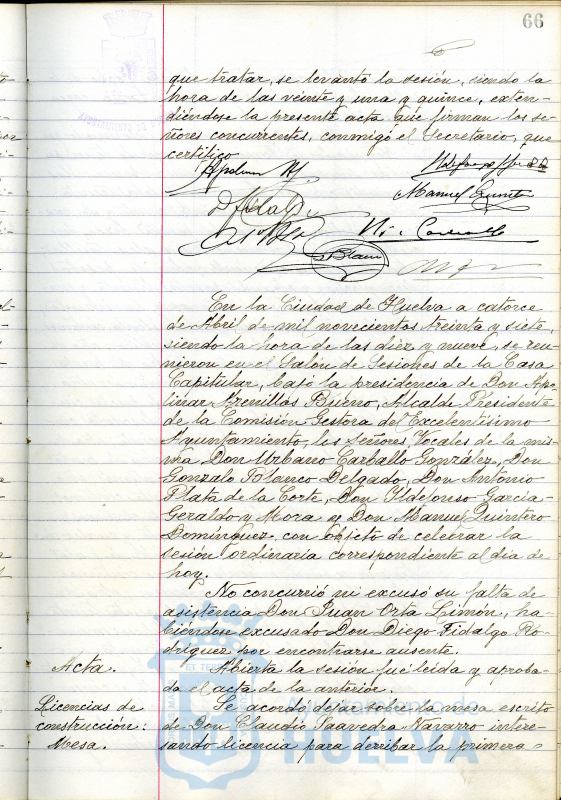 66
que tratar, se levantó la sesión, siendo la
hora de las veinte y una y quince, exten-
diéndose la presente acta que firman los se-
ñores concurrentes, conmigo el Secretario, que
certifico
Manuel Quintero
En la Ciudad de Huelva a catorce
de Abril de mil novecientos treinta y siete,
siendo la hora de las diez y nueve, se reu-
nieron en el Salón de Sesiones de la Casa
Capitular, bajo la presidencia de Don Apo-
linar Arenillas Bueno, Alcalde Presidente
de la Comisión Gestora del Excelentísimo
Ayuntamiento, los señores Vocales de la mis-
ma Don Urbano Carballo González, Don
Gonzalo Blanco Delgado, Don Antonio
Plata de la Corte, Don Ildefonso García-
Geraldo y Mora y Don Manuel Quintero
Domínguez, con objeto de celebrar la
sesión ordinaria correspondiente al día de
hoy.
No concurrió ni excusó su falta de
asistencia Don Juan Orta Limón, ha-
biéndose excusado Don Diego Fidalgo Ro-
dríguez por encontrarse ausente.
Acta. Abierta la sesión fué leída y aproba-
da el acta de la anterior.
Licencias de Se acordó dejar sobre la mesa escrito
construcción: de Don Claudio Saavedra Navarro intere-
Mesa. sando licencia para derribar la primera
HUELVA